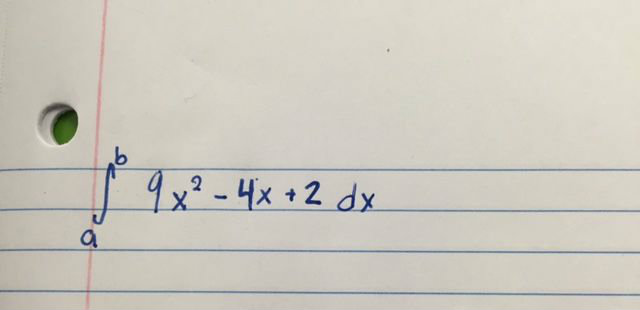 ∫_a^b 9x² - 4x + 2 dx